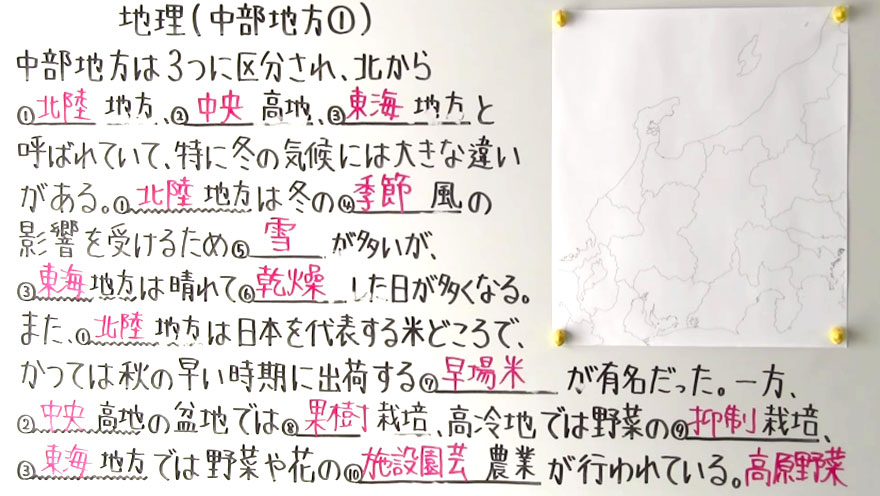 地理(中部地方①)
中部地方は3つに区分され、北から
①北陸 地方、②中央 高地、③東海 地方と
呼ばれていて、特に冬の気候には大きな違い
がある。①北陸 地方は冬の④季節 風の
影響を受けるため⑤雪 が多いが、
③東海 地方は晴れて⑥乾燥 した日が多くなる。
また、①北陸 地方は日本を代表する米どころで、
かつては秋の早い時期に出荷する⑦早場米 が有名だった。一方、
②中央 高地の盆地では⑧果樹 栽培、高冷地では野菜の⑨抑制 栽培、
③東海 地方では野菜や花の⑩施設園芸 農業 が行われている。高原野菜